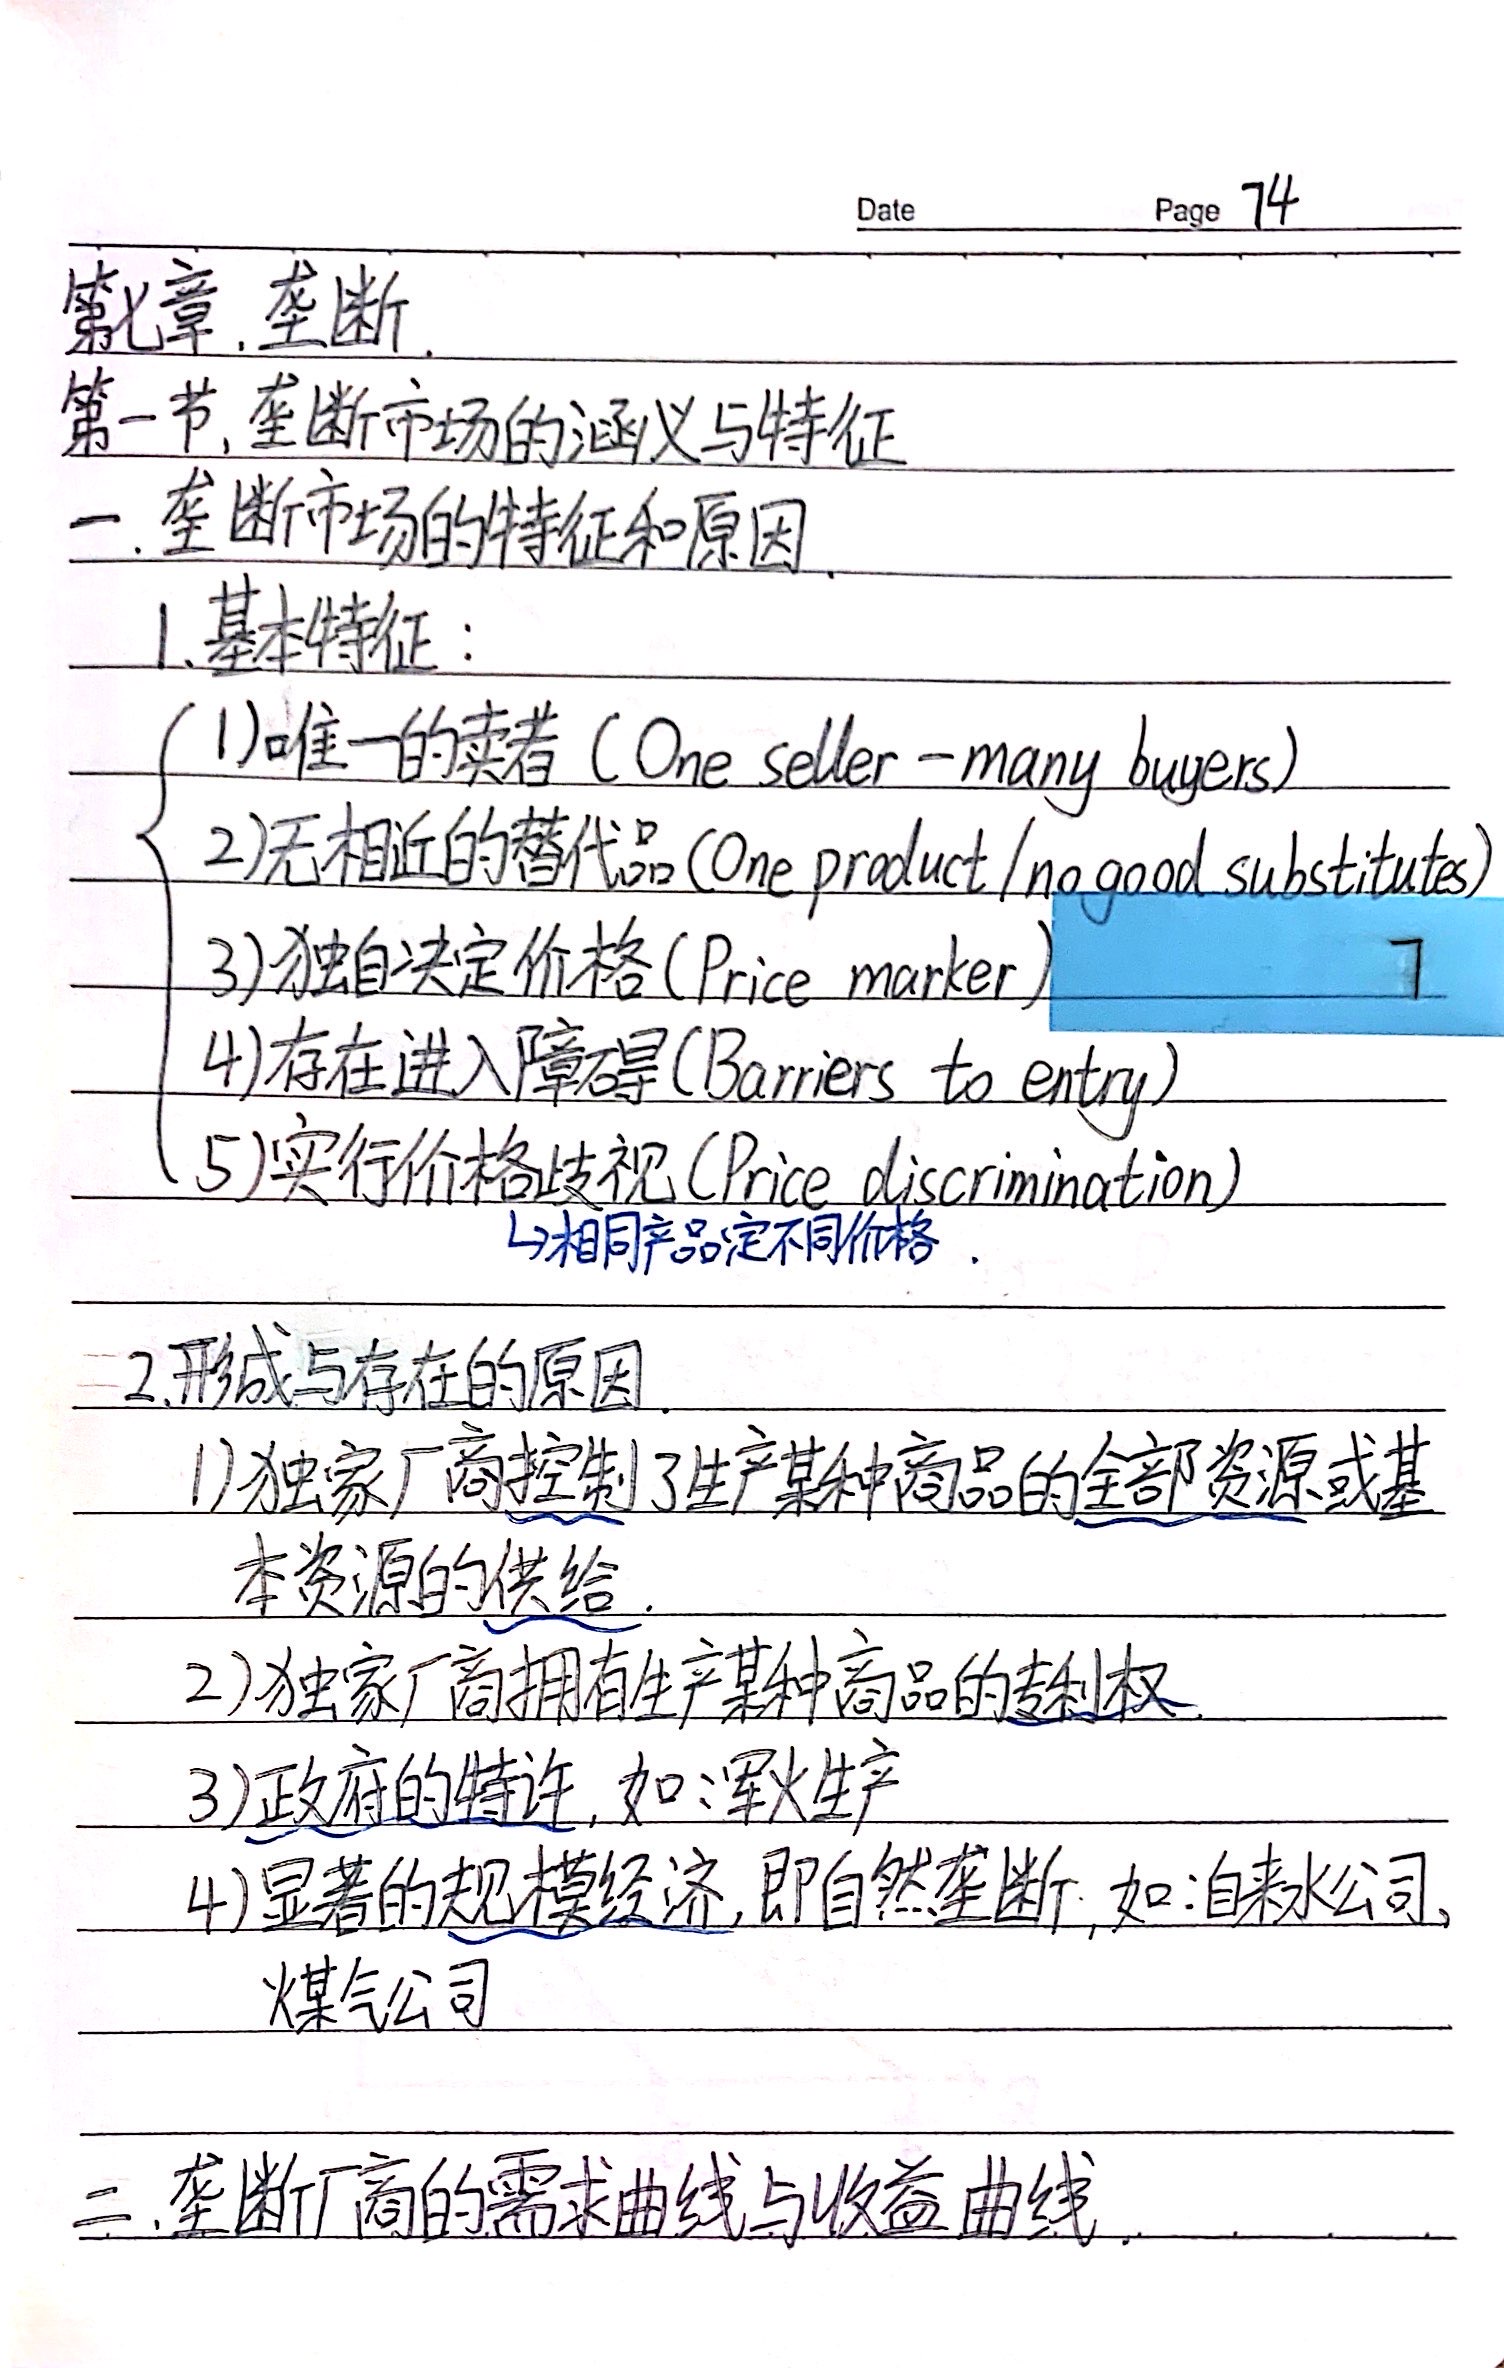 Date Page 74
第七章.垄断.
第一节、垄断市场的涵义与特征
一.垄断市场的特征和原因.
1、基本特征:
1)唯一的卖者(One seller-many buyers)
2)无相近的替代品(One product/no good substitutes)
3)独自决定价格(Price marker)
7
4)存在进入障碍(Barriers to entry)
5)实行价格歧视(Price discrimination)
↳相同产品定不同价格.
2.形成与存在的原因.
1)独家厂商控制了生产某种商品的全部资源或基
本资源的供给.
2)独家厂商拥有生产某种商品的专利权.
3)政府的特许,如:军火生产
4)显著的规模经济,即自然垄断,如:自来水公司、
煤气公司
二.垄断厂商的需求曲线与收益曲线.